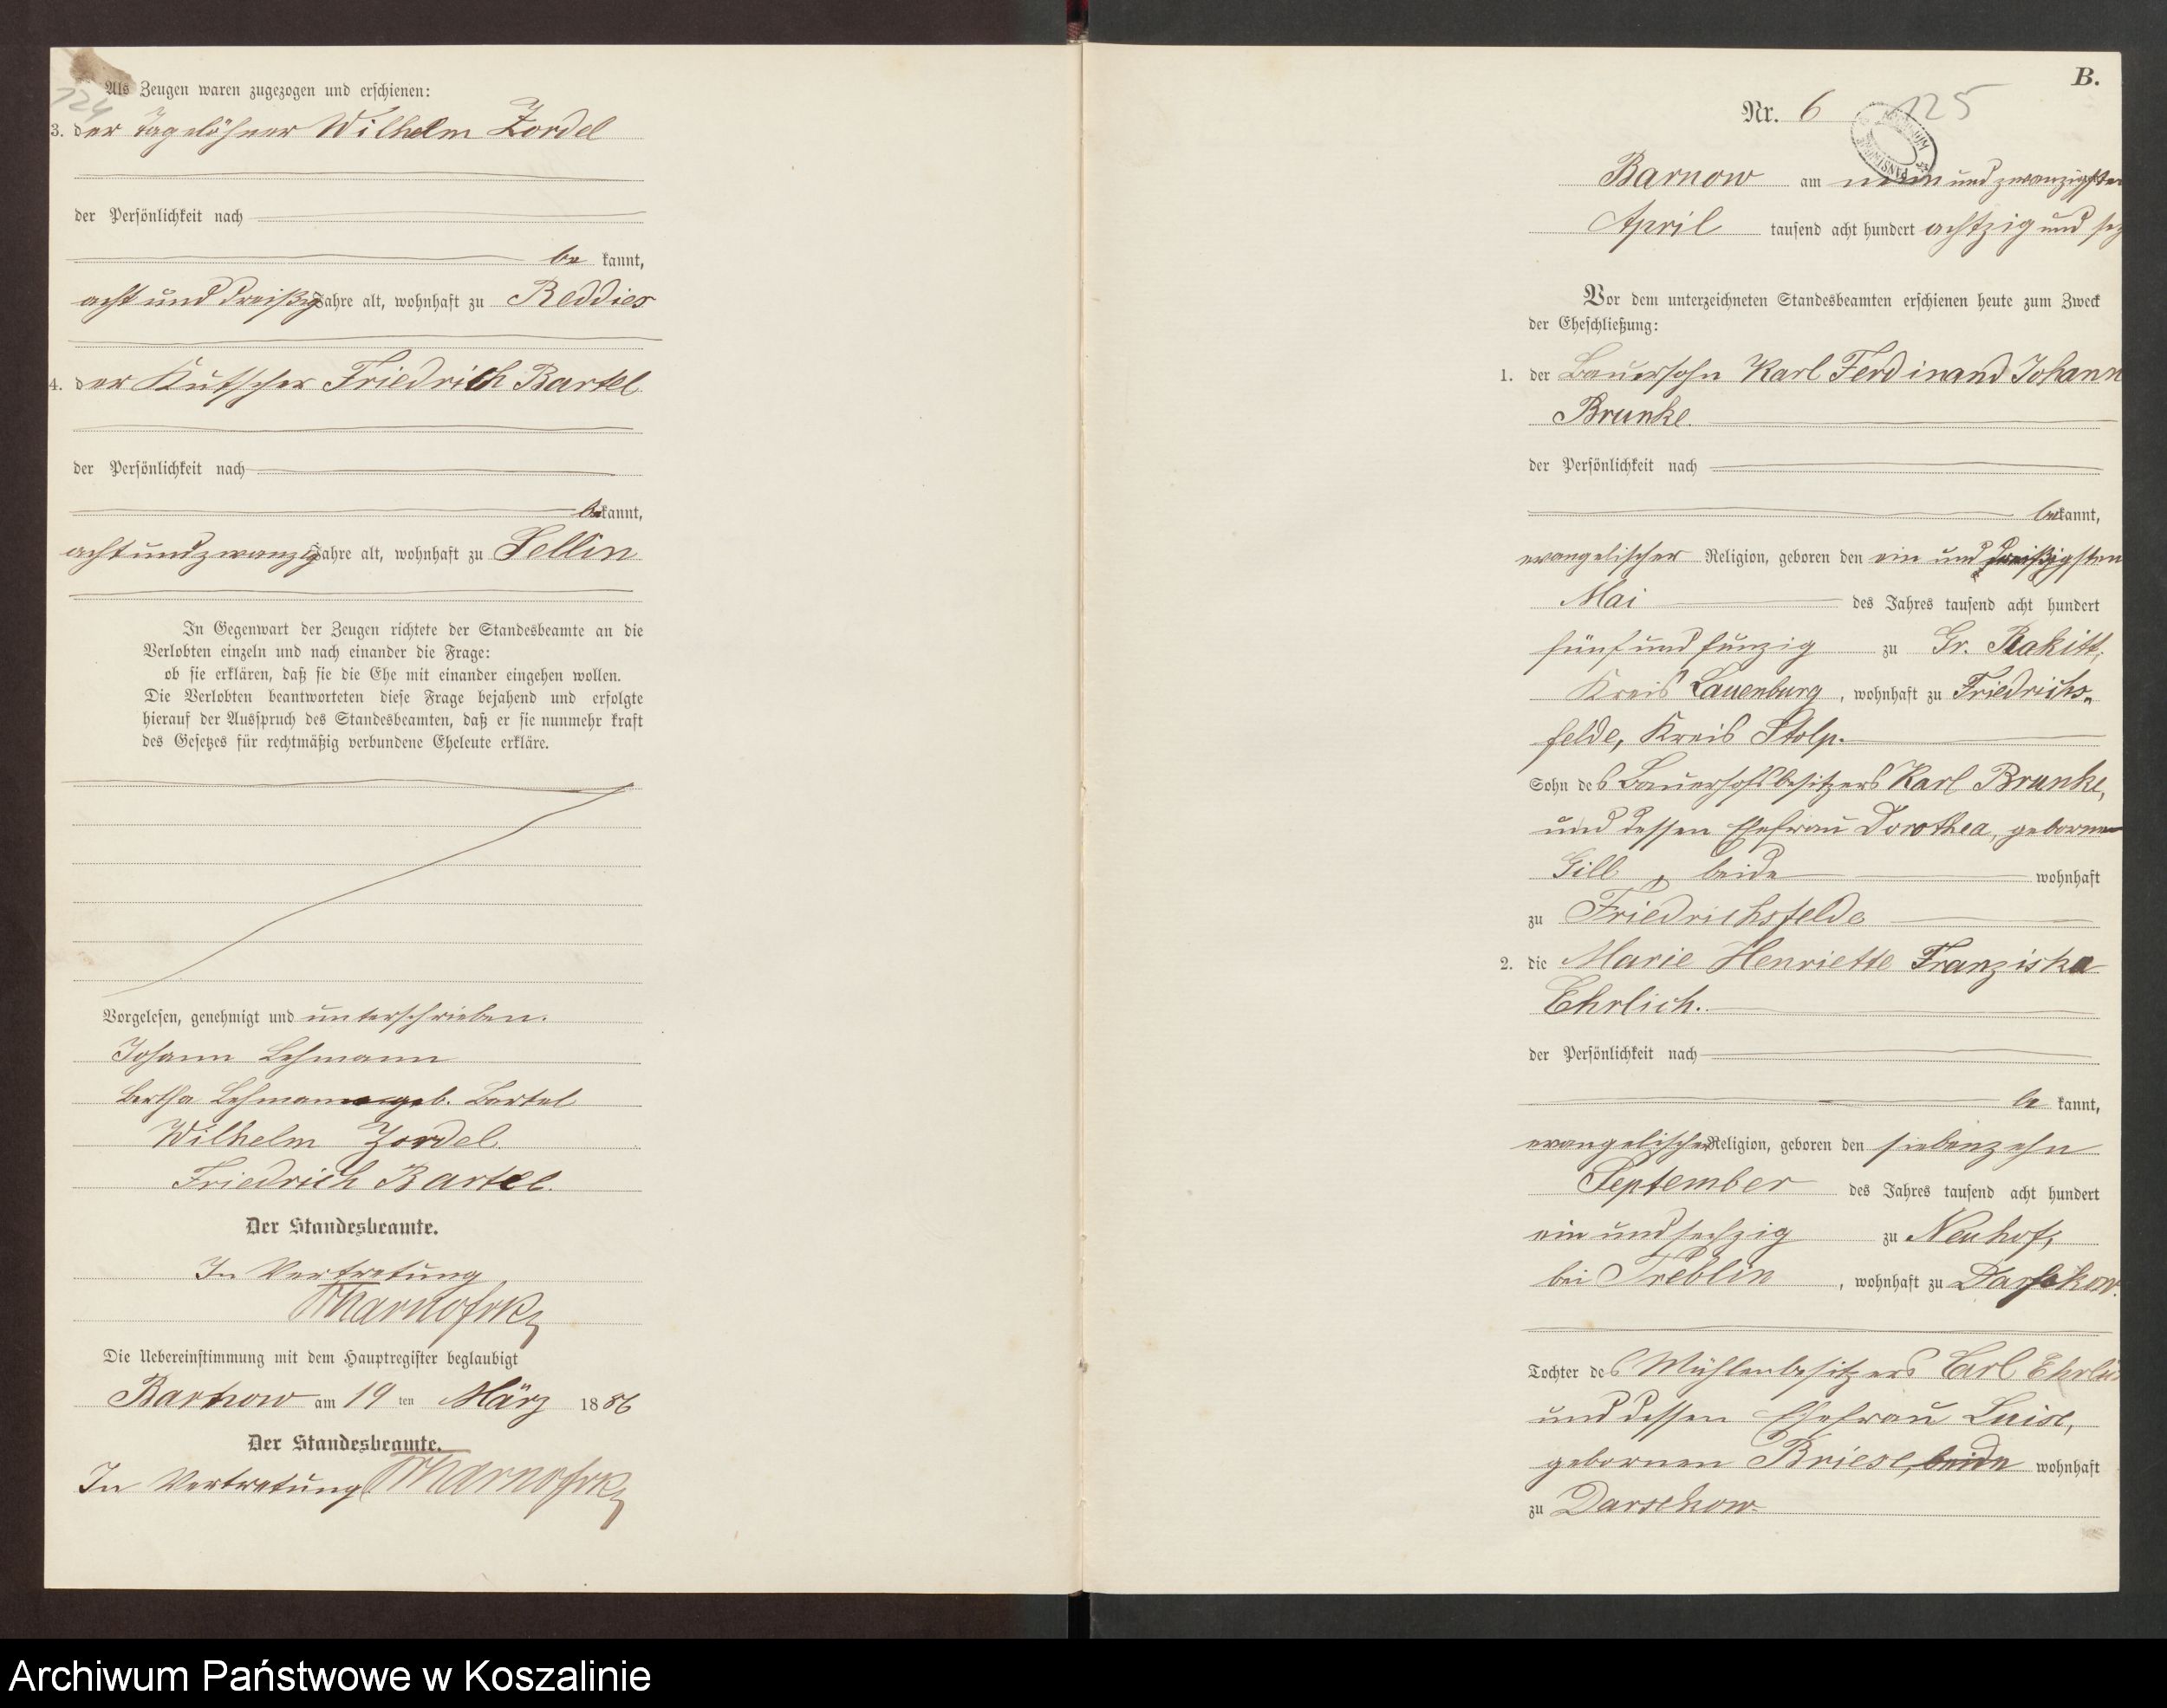 124
Als Zeugen waren zugezogen und erschienen:
3. der Tagelöhner Wilhelm Zordel
der Persönlichkeit nach
be kannt,
acht und dreißig Jahre alt, wohnhaft zu Reddies
4. der Kutscher Friedrich Bartel
der Persönlichkeit nach
bekannt,
achtundzwanzig Jahre alt, wohnhaft zu Sellin
In Gegenwart der Zeugen richtete der Standesbeamte an die
Verlobten einzeln und nach einander die Frage:
ob sie erklären, daß sie die Ehe mit einander eingehen wollen.
Die Verlobten beantworteten diese Frage bejahend und erfolgte
hierauf der Ausspruch des Standesbeamten, daß er sie nunmehr kraft
des Gesetzes für rechtmäßig verbundene Eheleute erkläre.
Vorgelesen, genehmigt und unterschrieben.
Johann Lehmann
Bertha Lehmann geb. Bartel
Wilhelm Zordel
Friedrich Bartel.
Der Standesbeamte.
In Vertretung
Die Uebereinstimmung mit dem Hauptregister beglaubigt
Barnow am 19 ten März 1886
Der Standesbeamte.
In Vertretung
B.
Nr. 6
125
Barnow am neun und zwanzigsten
April tausend acht hundert achtzig und sec
Vor dem unterzeichneten Standesbeamten erschienen heute zum Zweck
der Eheschließung:
1. der Bauersohn Karl Ferdinand Johann
Brunke.
der Persönlichkeit nach
bekannt,
evangelischer Religion, geboren den ein und dreißigsten
Mai des Jahres tausend acht hundert
fünf und funzig zu Gr. Rakitt,
Kreis Lauenburg, wohnhaft zu Friedrichs-
felde, Kreis Stolp.
Sohn des Bauerhofsbesitzers Karl Brunke,
und dessen Ehefrau Dorothea, geborne
Gill, beide wohnhaft
zu Friedrichsfelde
2. die Marie Henriette Franziska
Ehrlich.
der Persönlichkeit nach
be kannt,
evangelischer Religion, geboren den siebenzehn
September des Jahres tausend acht hundert
ein und sechzig zu Neuhof,
bei Treblin, wohnhaft zu Darsekow.
Tochter des Mühlenbesitzers Carl Ehrlich
und dessen Ehefrau Luise,
gebornen Briese, beide wohnhaft
zu Darsekow.
Archiwum Państwowe w Koszalinie